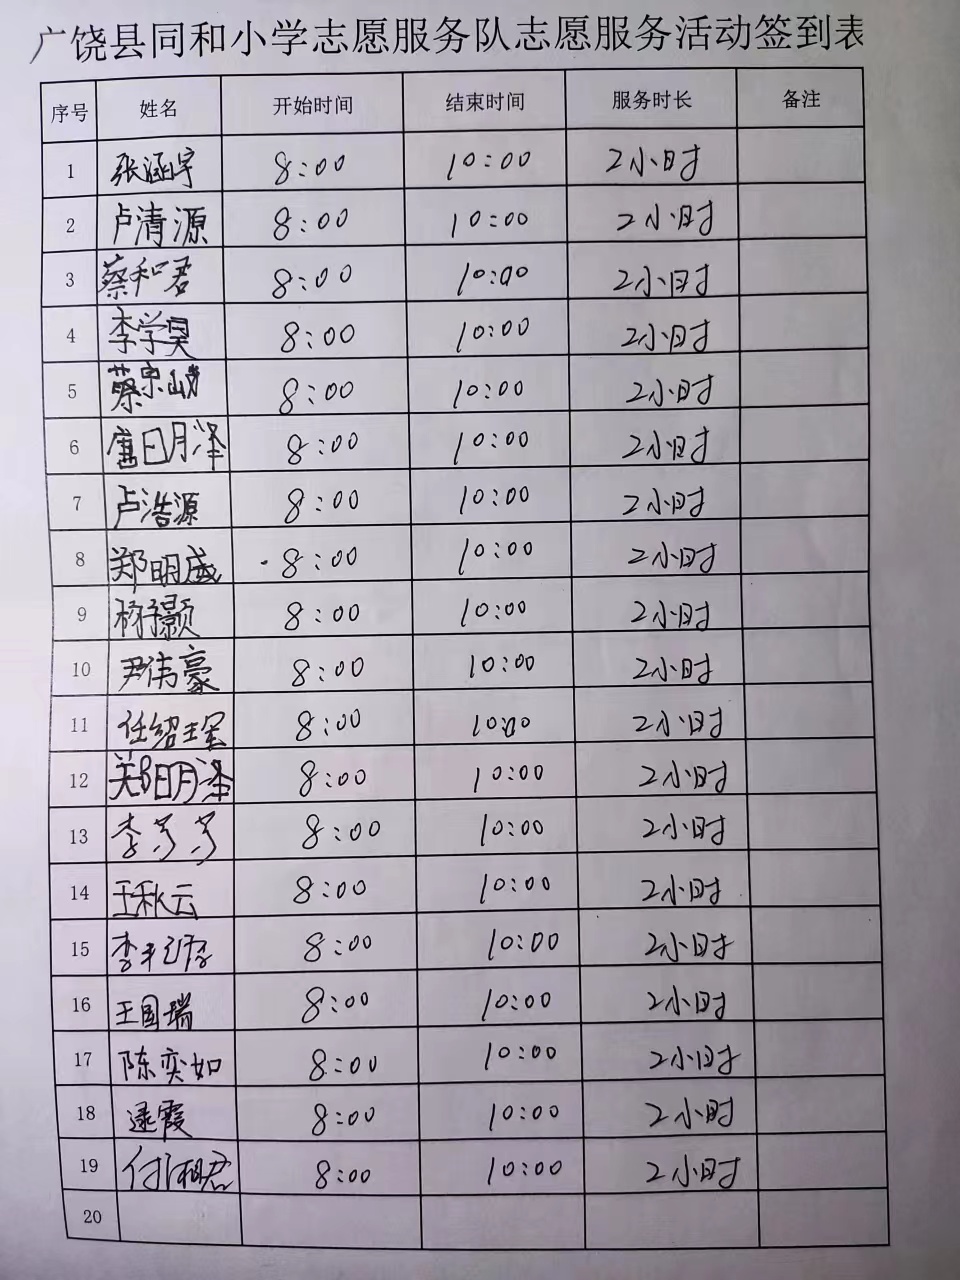 广饶县同和小学志愿服务队志愿服务活动签到表
序号 姓名 开始时间 结束时间 服务时长 备注
1 张涵宇 8:00 10:00 2小时
2 卢清源 8:00 10:00 2小时
3 蔡和君 8:00 10:00 2小时
4 李学昊 8:00 10:00 2小时
5 8:00 10:00 2小时
6 唐明泽 8:00 10:00 2小时
7 卢浩源 8:00 10:00 2小时
8 郑明盛 8:00 10:00 2小时
9 杨子灏 8:00 10:00 2小时
10 尹伟豪 8:00 10:00 2小时
11 任绍珲 8:00 10:00 2小时
12 郑明泽 8:00 10:00 2小时
13 李芳芳 8:00 10:00 2小时
14 王秋云 8:00 10:00 2小时
15 8:00 10:00 2小时
16 王国瑞 8:00 10:00 2小时
17 陈奕如 8:00 10:00 2小时
18 逯霞 8:00 10:00 2小时
19 付湘君 8:00 10:00 2小时
20